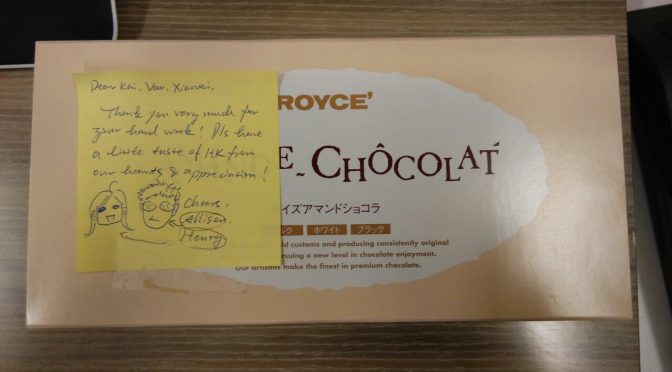 Dear Kai, Van, Xiaowei,
Thank you very much for
your hard work! Pls have
a little taste of HK from
our hearts & appreciation!
Cheers,
Allison.
Henry
ROYCE'
E-CHOCOLAT
イズアマンドショコラ
ンク ホワイト ブラック
ld customs and producing consistently original
rsuing a new level in chocolate enjoyment.
Our artisans make the finest in premium chocolate.